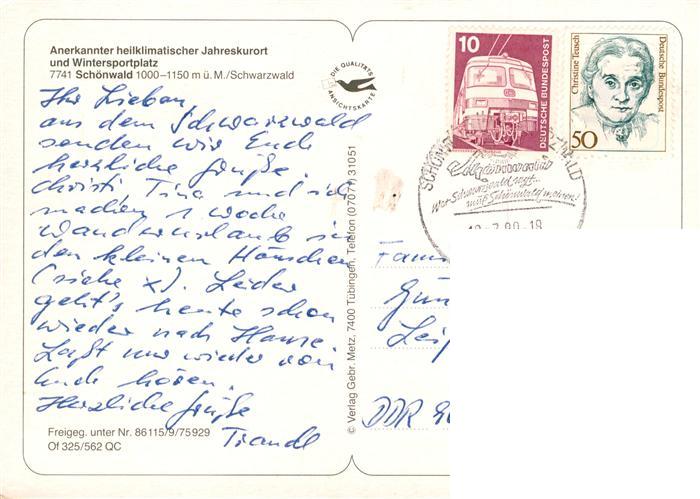 Anerkannter heilklimatischer Jahreskurort
und Wintersportplatz
7741 Schönwald 1000–1150 m ü. M./Schwarzwald
Ihr Lieben,
aus dem Schwarzwald
senden wir Euch
herzliche Grüße.
Christi Tina und ich
machen 1 Woche
Wanderurlaub in
den kleinen Häuschen
(siehe x). Leider
geht's heute schon
wieder nach Hause.
Laßt mal wieder von
Euch hören.
Herzliche Grüße
Traudl
Freigeg. unter Nr. 86115/9/75929
Of 325/562 QC
DIE QUALITÄTS
ANSICHTSKARTE
© Verlag Gebr. Metz, 7400 Tübingen, Telefon (07071) 31051
10
DEUTSCHE BUNDESPOST
Christine Teusch
Deutsche Bundespost
50
SCHÖNW
ZWALD
Wer Schwarzwald sagt...
muß Schönwald meinen!
-7.90-18
Fam
Gün
Leip
DDR